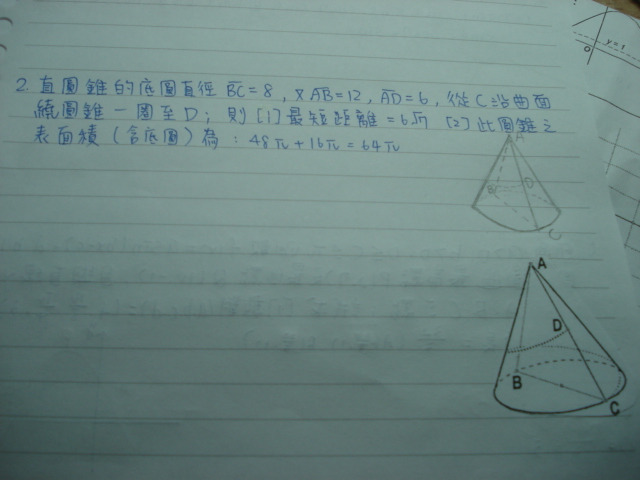 2. 直圓錐的底圓直徑 BC=8, 又AB=12, AD=6, 從C沿曲面
繞圓錐一圈至D; 則[1]最短距離=6√7 [2]此圓錐之
表面積(含底圓)為: 48π+16π=64π
A
B
D
C
A
D
B
C
y=1
0